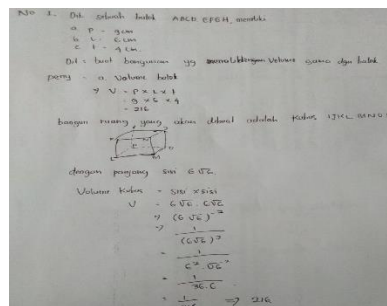 No 1. Dik sebuah balok ABCD EFGH memiliki
a p = 9 cm
b l = 6 cm
c t = 4 cm
Dit : buat bangunan yg volume sama dgn balok
peny = a. Volume balok
⇒ V = P x l x t
= 9 x 6 x 4
= 216
bangun ruang yang akan dibuat adalah kubus IJKL MNO
dengan panjang sisi 6√6
Volume kubus = sisi x sisi
V = 6√6 . 6√6
⇒ (6√6)⁻²
⇒ 1 / (6√6)²
= 1 / 6² . √6²
= 1 / 36 . 6
= 1 ⇒ 216